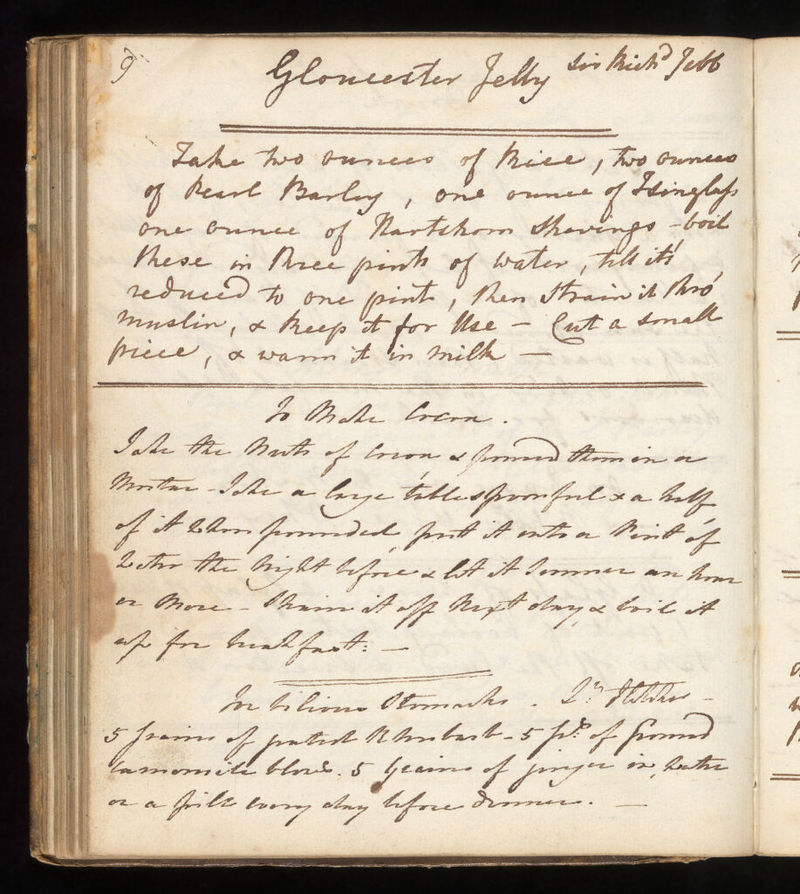 9
Gloucester Jelly Sir Richd Jebb
Take two ounces of Rice, two ounces
of Pearl Barley, one ounce of Isinglass
one ounce of Hartshorn Shavings - boil
these in three pints of water, till it's
reduced to one pint, then Strain it thro'
muslin, & keep it for Use - Cut a small
piece, & warm it in milk -
To Make Cocoa.
Take the Nuts of Cocoa & pound them in a
Mortar - Take a large tablespoonful & a half
of it when pounded, put it into a Pint of
Water the Night before & let it Simmer an hour
or More - Strain it off Next day & boil it
up for breakfast: -
For bilious Stomachs.
5 grains of grated Rhubarb - 5 grs of Ground
Camomile blows. 5 Grains of ginger in Water
or a pill every day before dinner. -